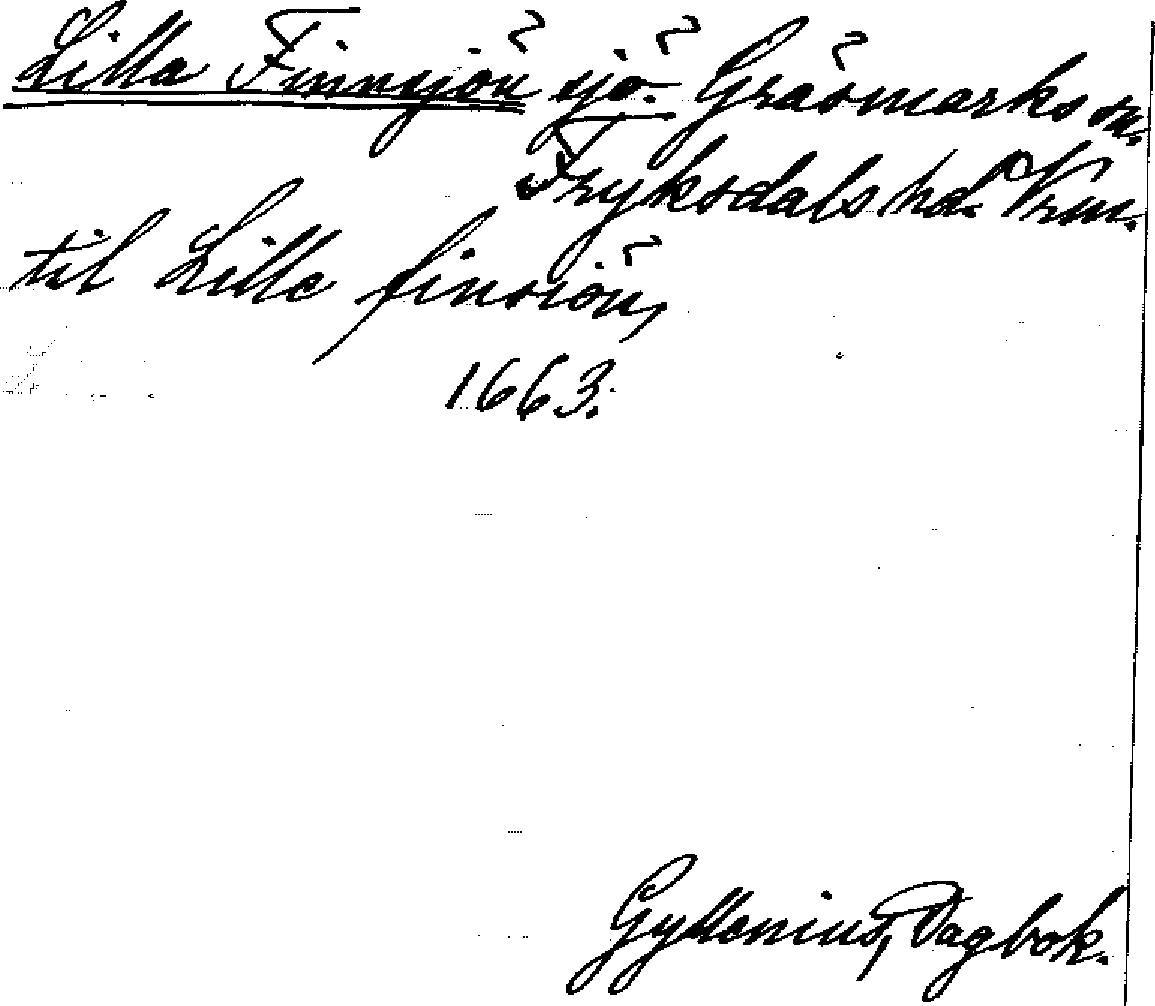 Lilla Finnsjön sjö. Gräsmarks sn.
Fryksdals hd. Vrm.
til Lille finsiön,
1663.
Gyllenius, Dagbok.